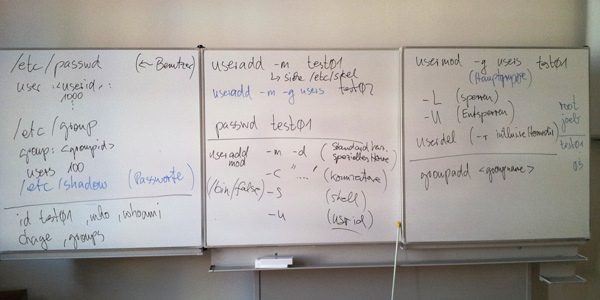 /etc/passwd (← Benutzer)
user :<userid>:
1000
/etc/group
group: <groupid>
users 100
/etc/shadow (Passworte)
id test01, who, whoami
chage, groups
useradd -m test01
↳ siehe /etc/skel
useradd -m -g users test02
passwd test01
useradd -m -d (Standard
mod spezielles Home)
-c "....." (Kommentare)
(/bin/false) -s (shell)
-u (userid)
usermod -g users test01
(Hauptgruppe)
-L (sperren)
-U (Entsperren)
userdel (-r inklusive
groupadd <groupname>
root
test01
03